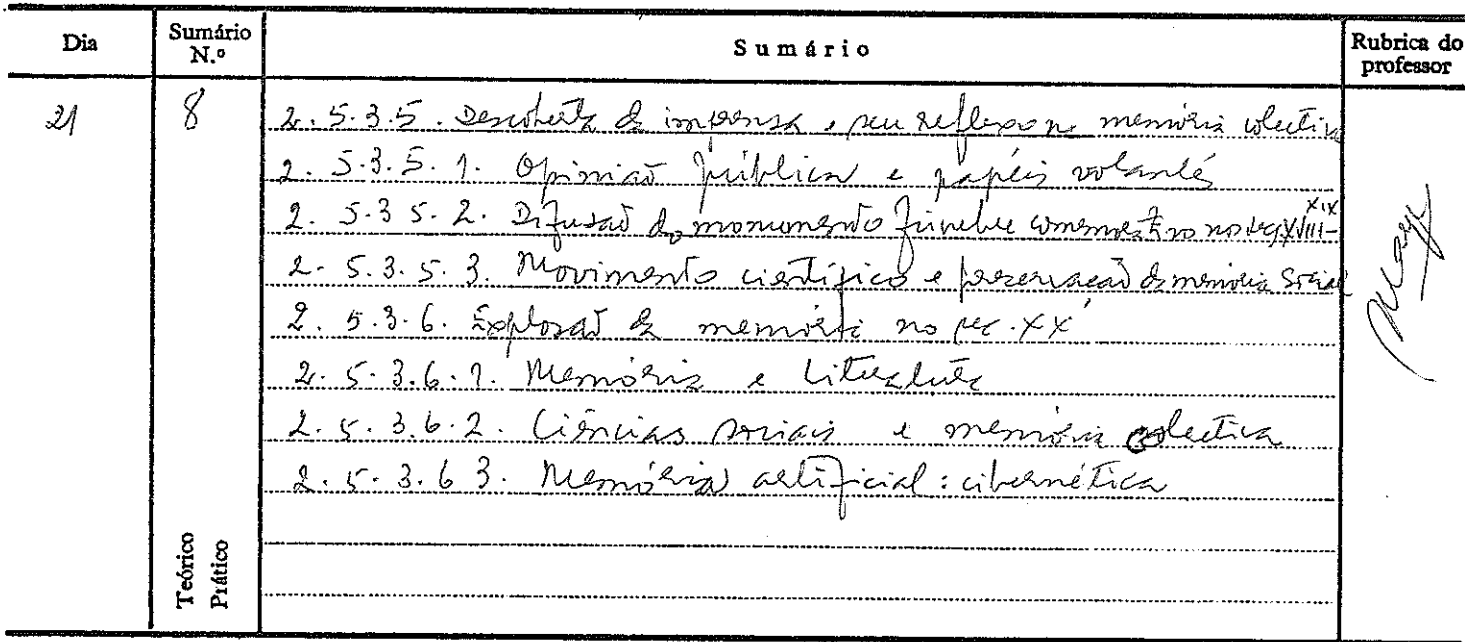 Dia Sumário N.º Sumário Rubrica do professor
21 8 2.5.3.5. Descoberta da imprensa e seu reflexo na memória colectiva
2.5.3.5.1. Opinião pública e papéis volantes
2.5.3.5.2. Difusão do monumento fúnebre comemorativo nos séc. XVIII-XIX
2.5.3.5.3. Movimento científico e preservação da memória social
2.5.3.6. Explosão da memória no séc. XX
2.5.3.6.1. Memória e Literatura
2.5.3.6.2. Ciências sociais e memória colectiva
2.5.3.6.3. Memória artificial: cibernética
Teórico
Prático